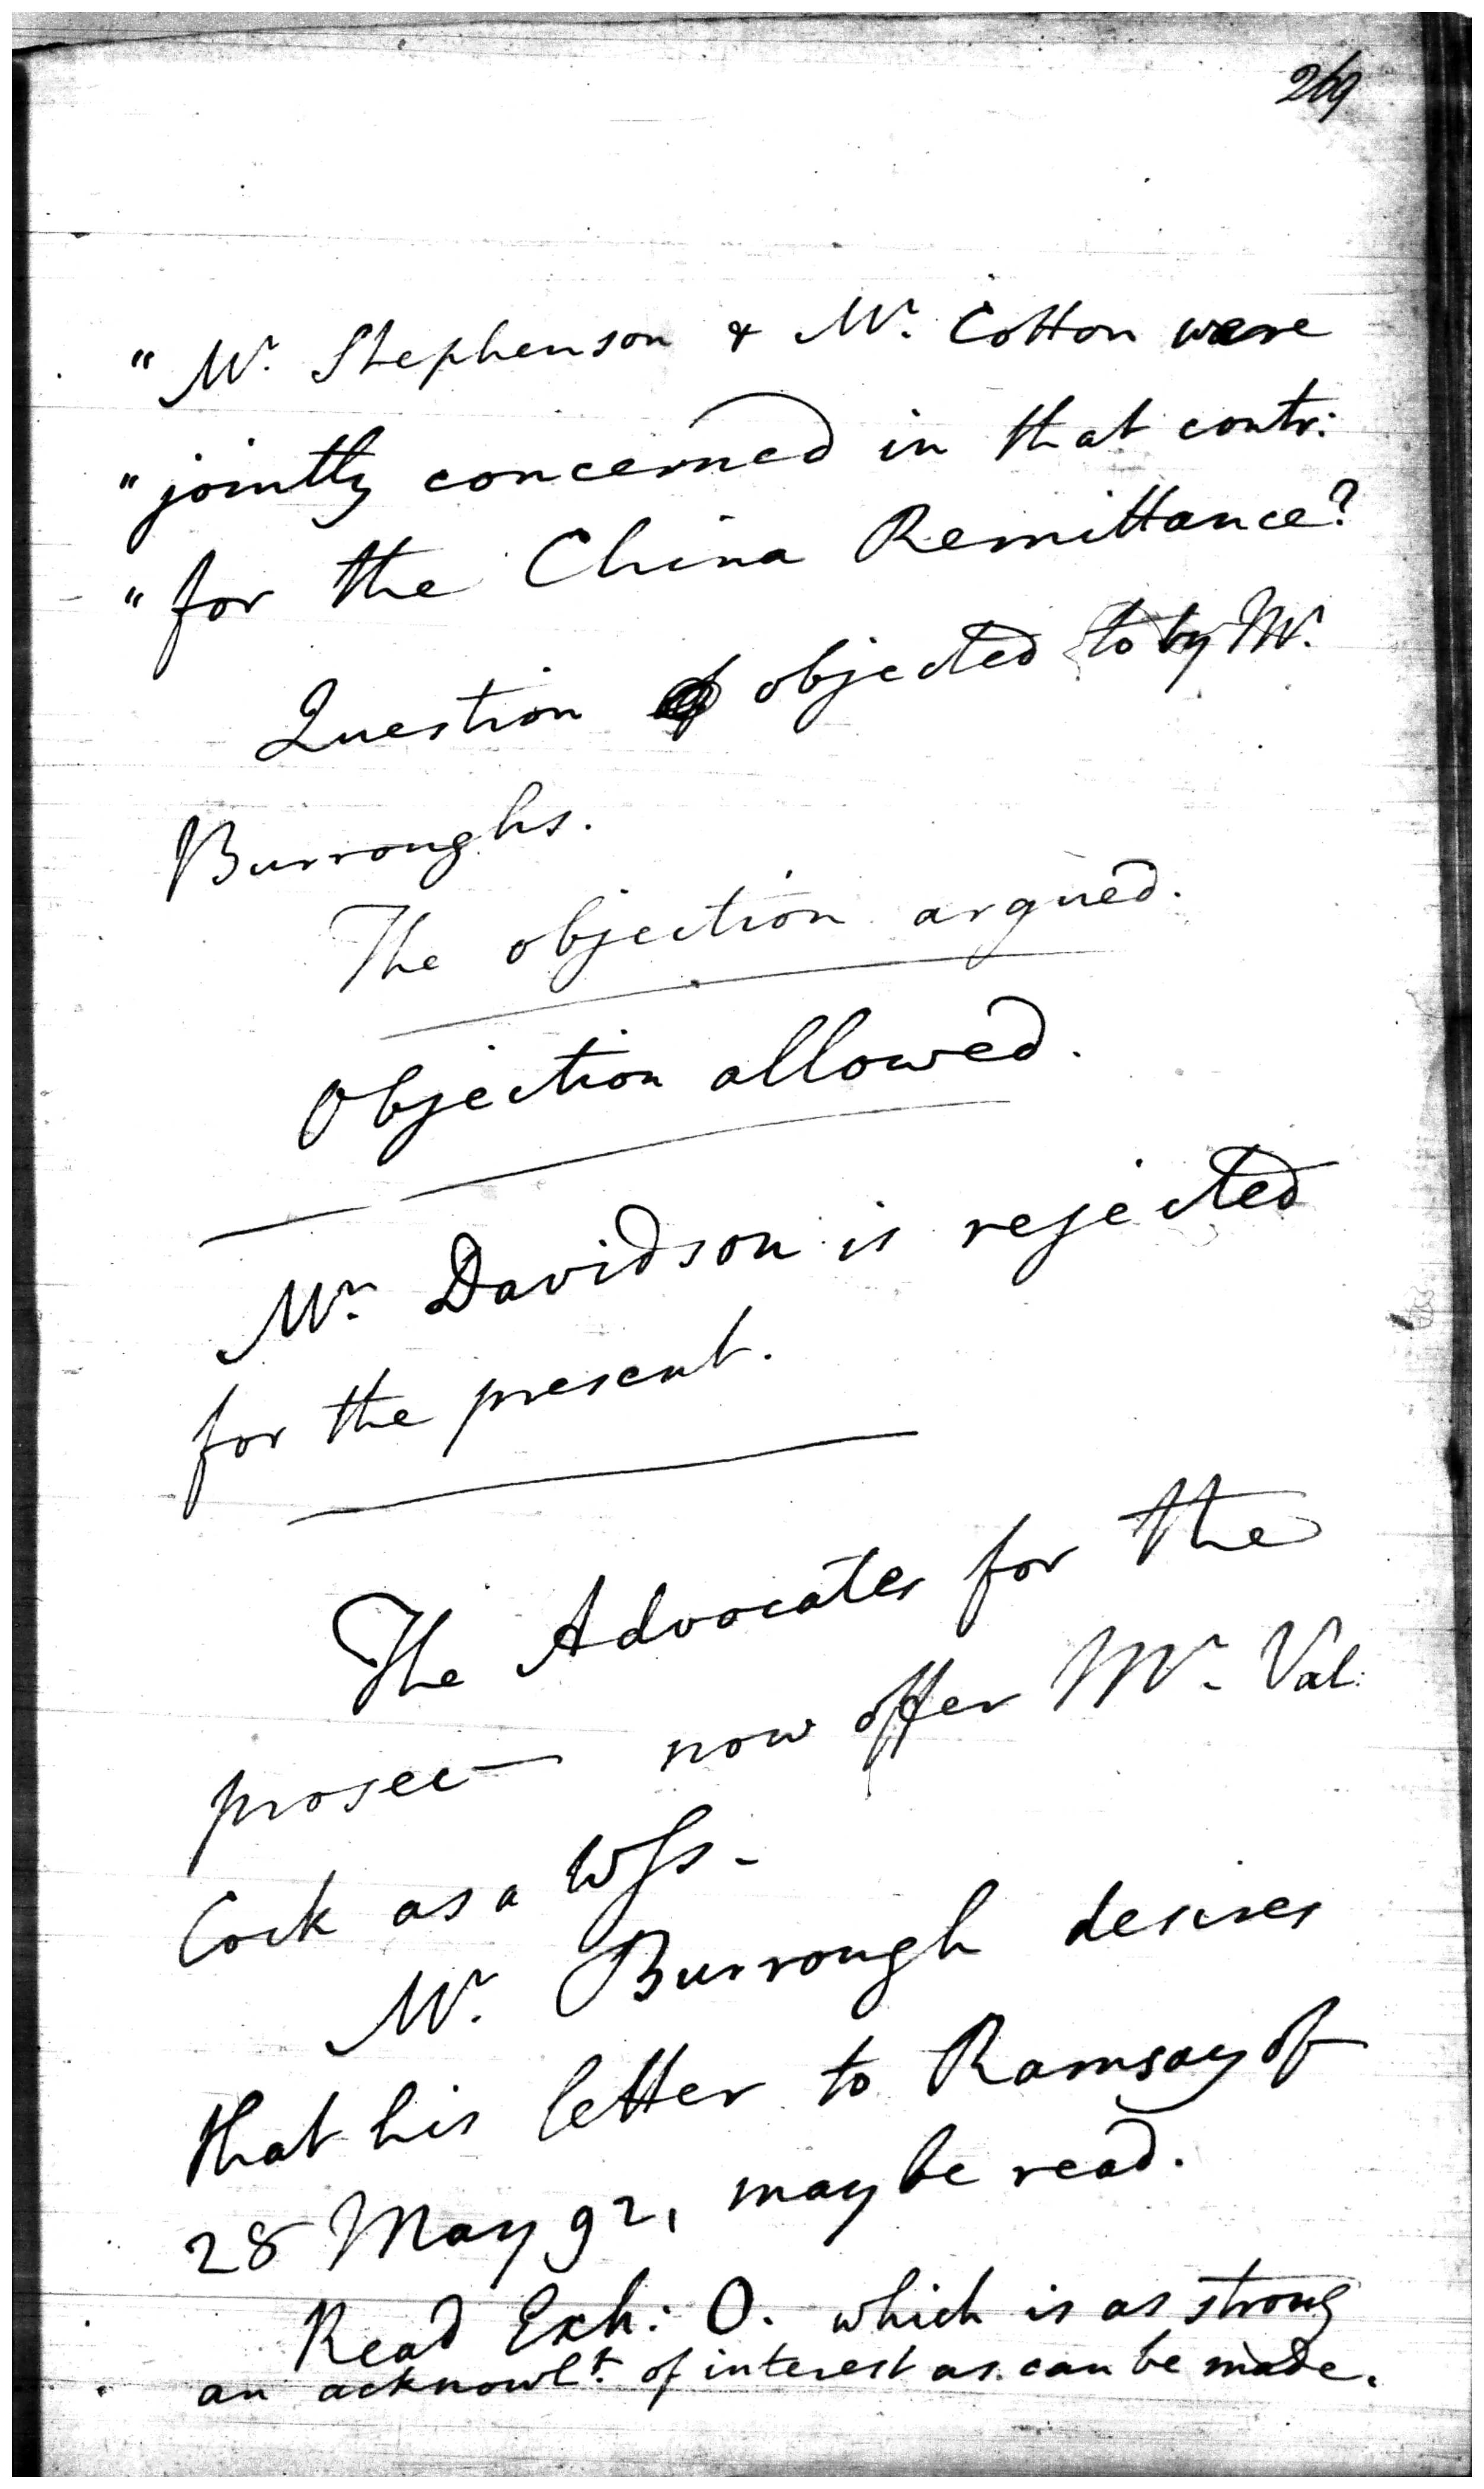 269
" Mr. Stephenson & Mr. Cotton were
" jointly concerned in that contr:
" for the China Remittance?
Question objected to by Mr.
Burroughs.
The objection argued.
Objection allowed.
Mr. Davidson is rejected
for the present.
The Advocates for the
prosec— now offer Mr. Val:
Cock as a Wss -
Mr. Burrough desires
that his letter to Ramsay of
28 May 92, may be read.
Read Exh: O. which is as strong
an acknowlt. of interest as can be made.